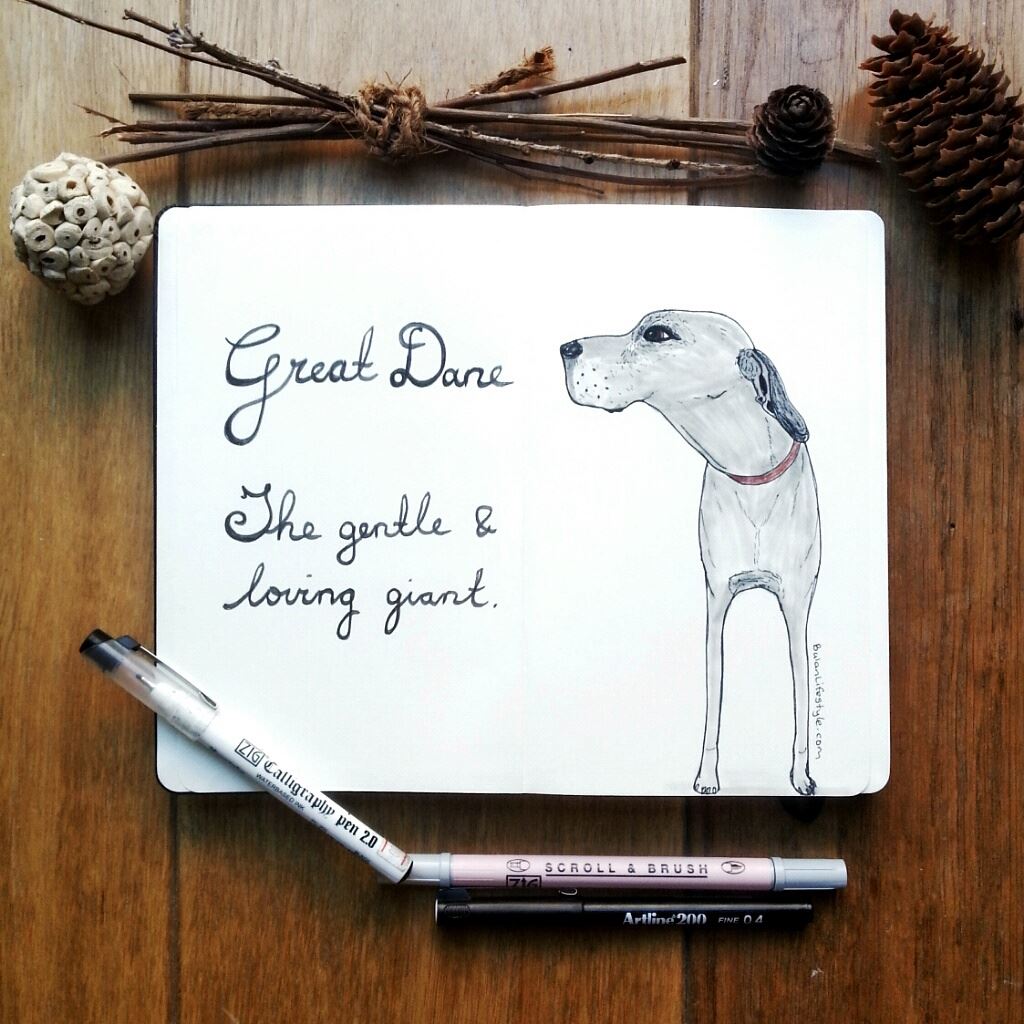 Great Dane
The gentle &
loving giant.
BulanLifestyle.com
ZIG Calligraphy pen 2.0
WATERBASED INK
SCROLL & BRUSH
ZIG
Artline 200 FINE 0.4